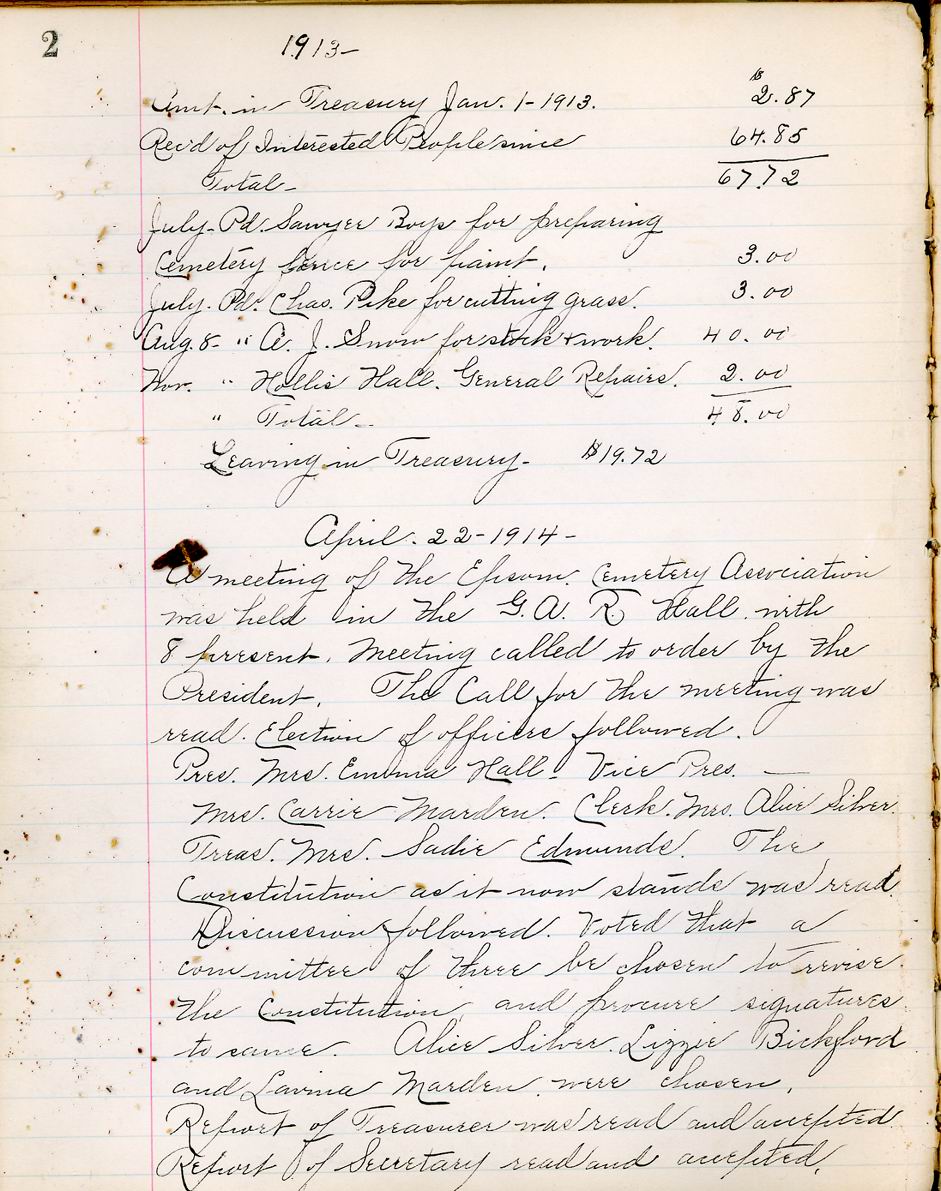 2
1913-
Amt. in Treasury Jan. 1-1913. $2.87
Rec'd of Interested People since 64.85
Total- 67.72
July- Pd. Sawyer Boys for preparing
Cemetery fence for paint. 3.00
July. Pd. Chas. Pike for cutting grass. 3.00
Aug. 8- " A. J. Snow for stock + work. 40.00
Nov. " Hollis Hall. General Repairs. 2.00
" Total- 48.00
Leaving in Treasury- $19.72
April. 22-1914-
A meeting of the Epsom. Cemetery Association
was held in the G. A. R Hall. with
8 present. Meeting called to order by the
President. The Call for the meeting was
read. Election of officers followed.
Pres. Mrs. Emma Hall- Vice Pres. —
Mrs. Carrie Marden. Clerk. Mrs. Alice Silver.
Treas. Mrs. Sadie Edmunds. The
Constitution as it now stands was read.
Discussion followed. Voted that a
committee of three be chosen to revise
the Constitution and procure signatures
to same. Alice Silver. Lizzie Bickford
and Lavina Marden were chosen.
Report of Treasurer was read and accepted
Report of Secretary read and accepted.